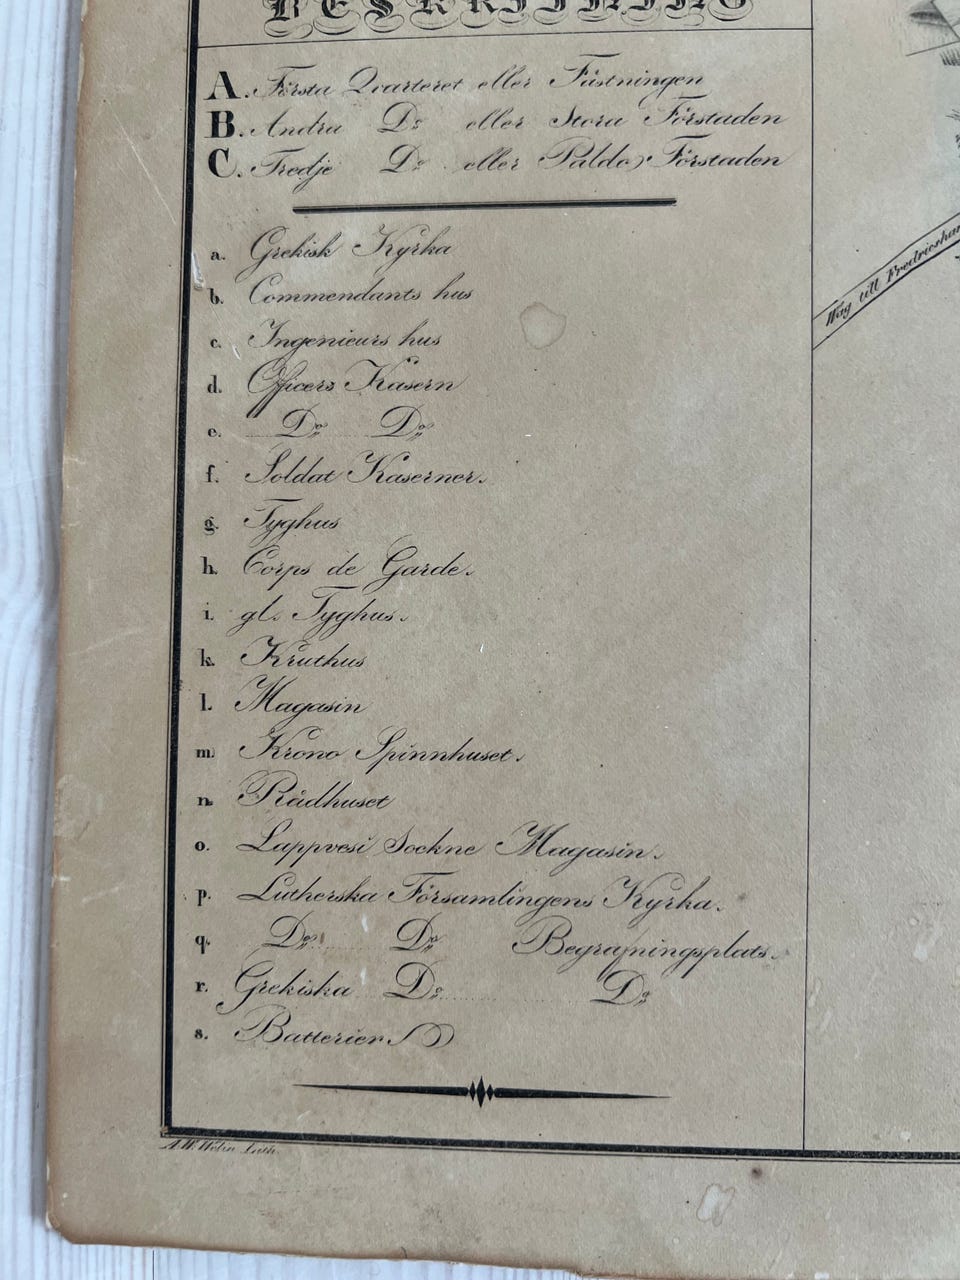 BESKRIFNING
A. Första Qvarteret eller Fästningen
B. Andra Do eller Stora Förstaden
C. Tredje Do eller Paldo Förstaden
a. Grekisk Kyrka
b. Commendants hus
c. Ingenieurs hus
d. Officers Kasern
e. Do Do
f. Soldat Kaserner.
g. Tyghus
h. Corps de Garde.
i. gl. Tyghus.
k. Kruthus
l. Magasin
m. Krono Spinnhuset.
n. Rådhuset
o. Lappvesi Sockne Magasin.
p. Lutherska Församlingens Kyrka.
q. Do Do Begrafningsplats.
r. Grekiska Do Do
s. Batterier
Wäg till Fredricsha
Lith.